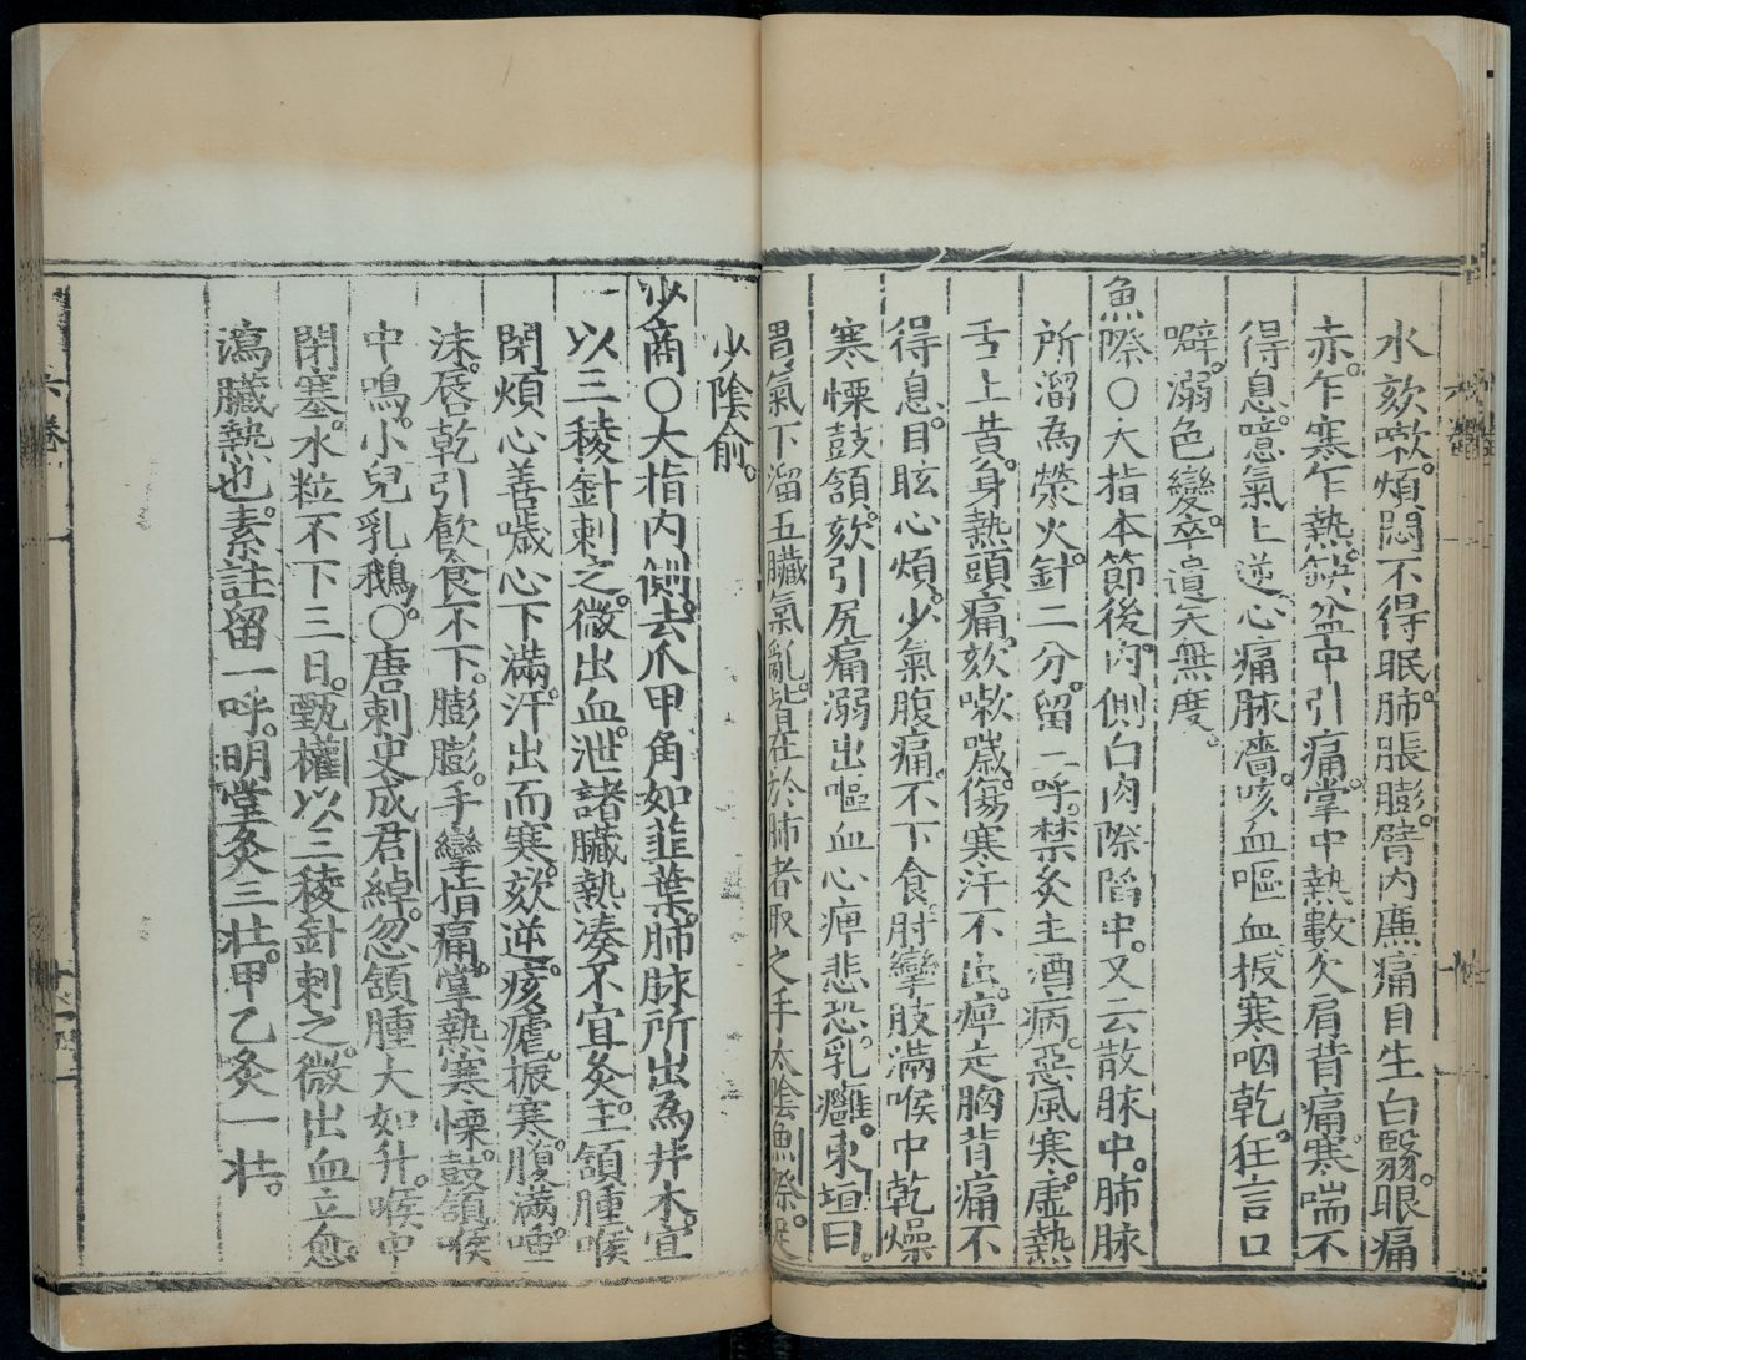 水欬嗽。煩悶不得眠肺脹膨。臂内廉痛目生白翳。眼痛
赤。乍寒乍熱。缺盆中引痛。掌中熱數欠肩背痛。寒喘不
得息。噫氣上逆心痛脉濇。咳血嘔血振寒咽乾。狂言口
噼。溺色變。卒遺矢無度。
魚際〇大指本節後内側白肉際陷中。又云散脉中。肺脉
所溜為滎火。針二分。留二呼。禁灸主酒病。惡風寒。虛熱
舌上黃身熱頭痛。欬嗽噦。傷寒汗不出。痺走胸背痛不
得息。目眩心煩。少氣腹痛。不下食。肘攣肢滿喉中乾燥
寒慄鼓頷。欬引尻痛溺出嘔血心痺悲恐。乳癰。東垣曰。
胃氣下溜五臟氣亂。皆在於肺者取之手太陰魚際。足
少陰俞。
少商〇大指内側。去爪甲角如韮葉。肺脉所出為井木。宜
以三稜針刺之。微出血。泄諸臟熱凑不宜灸。主頷腫喉
閉煩心善噦心下滿。汗出而寒。欬逆。痎瘧。振寒。腹滿。唾
沫。唇乾引飲食不下。膨膨。手攣指痛。掌熱寒慄。鼓頷喉
中鳴。小兒乳鵝。〇唐刺史成君綽。忽頷腫大如升。喉中
閉塞。水粒不下三日。甄權以三稜針刺之。微出血立愈。
瀉臟熱也。素註留一呼。明堂灸三壯。甲乙灸一壯。
六卷
十四